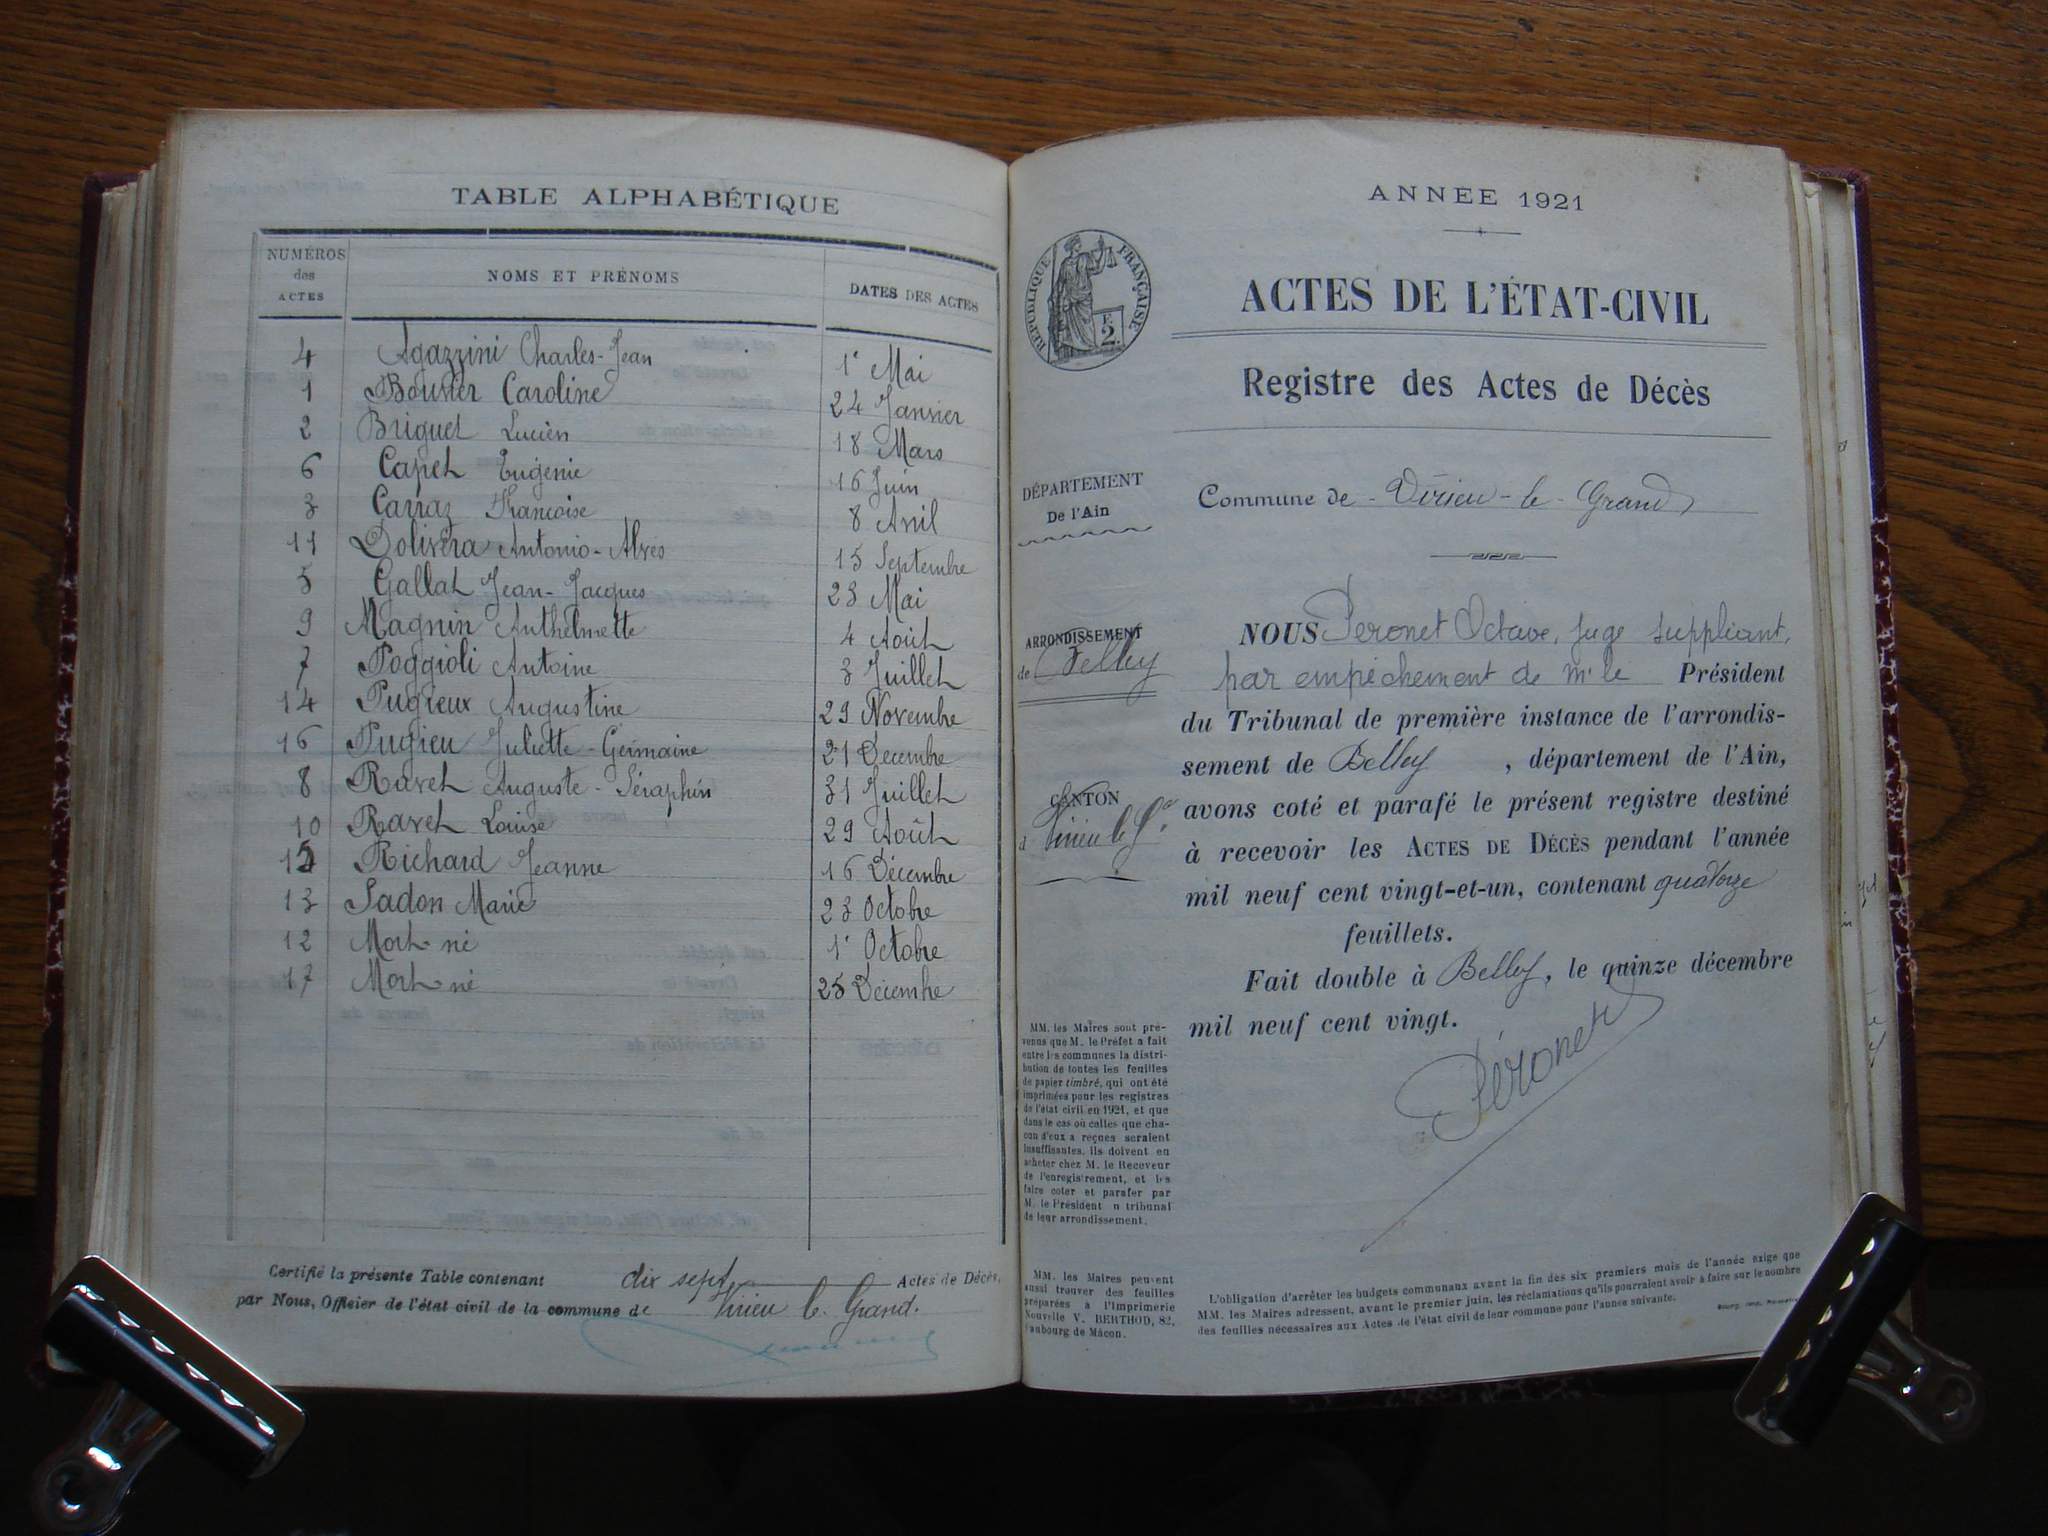 TABLE ALPHABÉTIQUE
NUMÉROS des ACTES NOMS ET PRÉNOMS DATES DES ACTES
4 Agazzini Charles-Jean 1er Mai
1 Bouvier Caroline 24 Janvier
2 Briguet Lucien 18 Mars
6 Capet Eugénie 16 Juin
3 Carraz Françoise 8 Avril
11 Dolivera Antonio-Alves 15 Septembre
5 Gallat Jean-Jacques 23 Mai
9 Magnin Anthelmette 4 Août
7 Poggioli Antoine 3 Juillet
14 Pugieux Augustine 29 Novembre
16 Pugieu Juliette-Germaine 21 Décembre
8 Ravet Auguste-Séraphin 31 Juillet
10 Ravet Louise 29 Août
15 Richard Jeanne 16 Décembre
13 Sadon Marie 23 Octobre
12 Mort-né 1er Octobre
17 Mort-né 25 Décembre
Certifié la présente Table contenant dix sept Actes de Décès,
par Nous, Officier de l'état civil de la commune de Virieu le Grand.
ANNEE 1921
RÉPUBLIQUE FRANÇAISE
E 2.
ACTES DE L'ÉTAT-CIVIL
Registre des Actes de Décès
DÉPARTEMENT
De l'Ain
Commune de - Virieu - le - Grand
ARRONDISSEMENT
de Belley
CANTON
d Virieu le Gd
NOUS Peronet Octave, juge suppléant,
par empêchement de Mr le Président
du Tribunal de première instance de l'arrondis-
sement de Belley, département de l'Ain,
avons coté et parafé le présent registre destiné
à recevoir les ACTES DE DÉCÈS pendant l'année
mil neuf cent vingt-et-un, contenant quatorze
feuillets.
Fait double à Belley, le quinze décembre
mil neuf cent vingt.
Péronet
MM. les Maires sont pré-
venus que M. le Préfet a fait
entre les communes la distri-
bution de toutes les feuilles
de papier timbré, qui ont été
imprimées pour les registres
de l'état civil en 1921, et que
dans le cas où celles que cha-
cun d'eux a reçues seraient
insuffisantes, ils doivent en
acheter chez M. le Receveur
de l'enregistrement, et les
faire coter et parafer par
M. le Président n tribunal
de leur arrondissement.
MM. les Maires peuvent
aussi trouver des feuilles
préparées à l'Imprimerie
Nouvelle V. BERTHOD, 82,
faubourg de Mâcon.
L'obligation d'arrêter les budgets communaux avant la fin des six premiers mois de l'année exige que
MM. les Maires adressent, avant le premier juin, les réclamations qu'ils pourraient avoir à faire sur le nombre
des feuilles nécessaires aux Actes de l'état civil de leur commune pour l'année suivante.